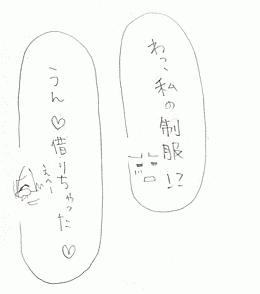 わっ、私の制服!?
うん♡借りちゃった♡
えへへー